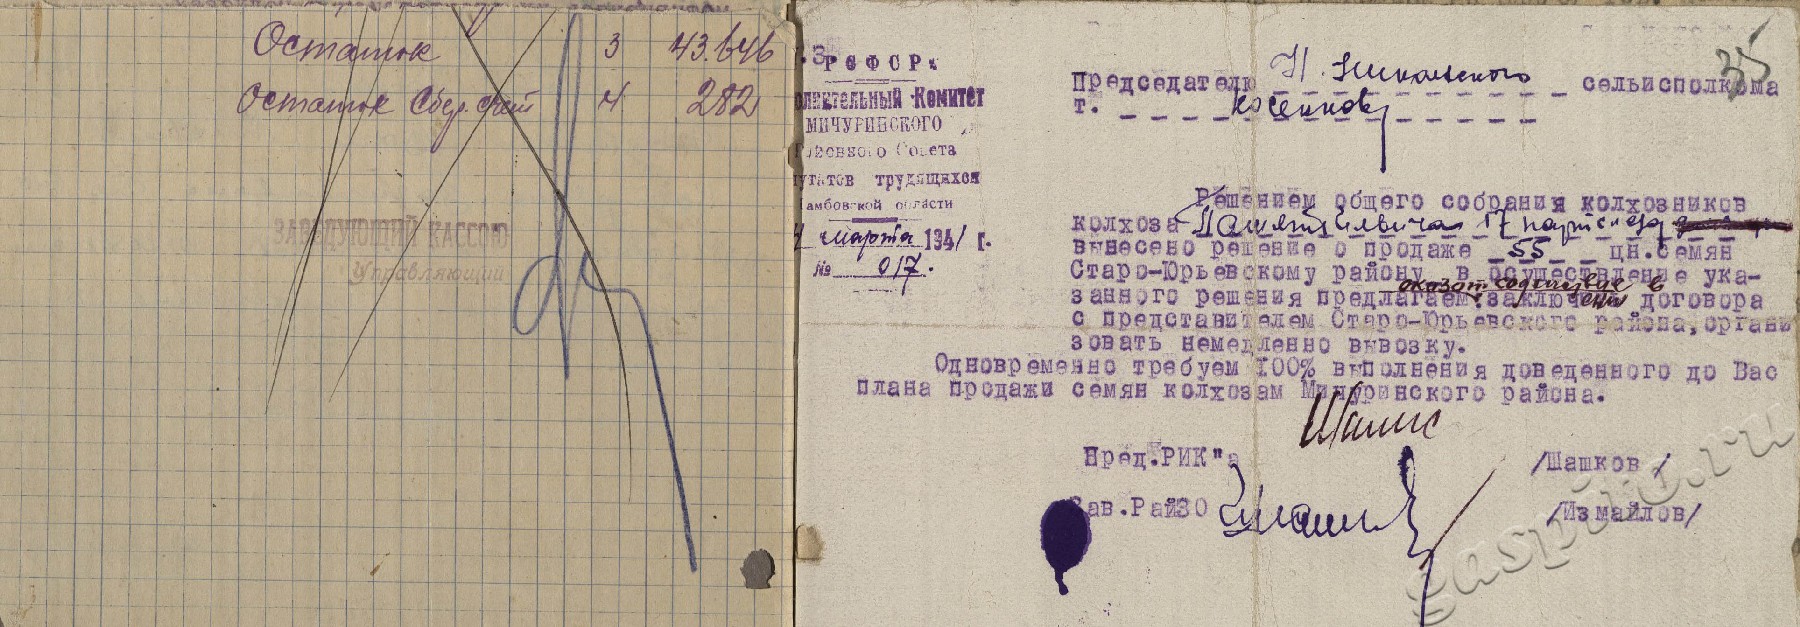 Остаток 3 43.646
Остаток Сбер. счёт 4 282
ЗАВЕДУЮЩИЙ КАССОЮ
Управляющий
35
РСФСР.
олнительный Комитет
МИЧУРИНСКОГО
Районного Совета
путатов трудящихся
амбовской области
4 марта 1941 г.
№ 017.
Председателю Н. Никольского сельисполкома
т. Косенкову
Решением общего собрания колхозников
колхоза Памяти Ильича 17 партсъезда
вынесено решение о продаже 55 цн. семян
Старо-Юрьевскому району в осуществление ука-
оказать содействие в
занного решения предлагаем заключении договора
с представителем Старо-Юрьевского района, органи
зовать немедленно вывозку.
Одновременно требуем 100% выполнения доведенного до Вас
плана продажи семян колхозам Мичуринского района.
Пред.РИК"а /Шашков/
Зав.РайЗО /Измайлов/
gaspito.ru